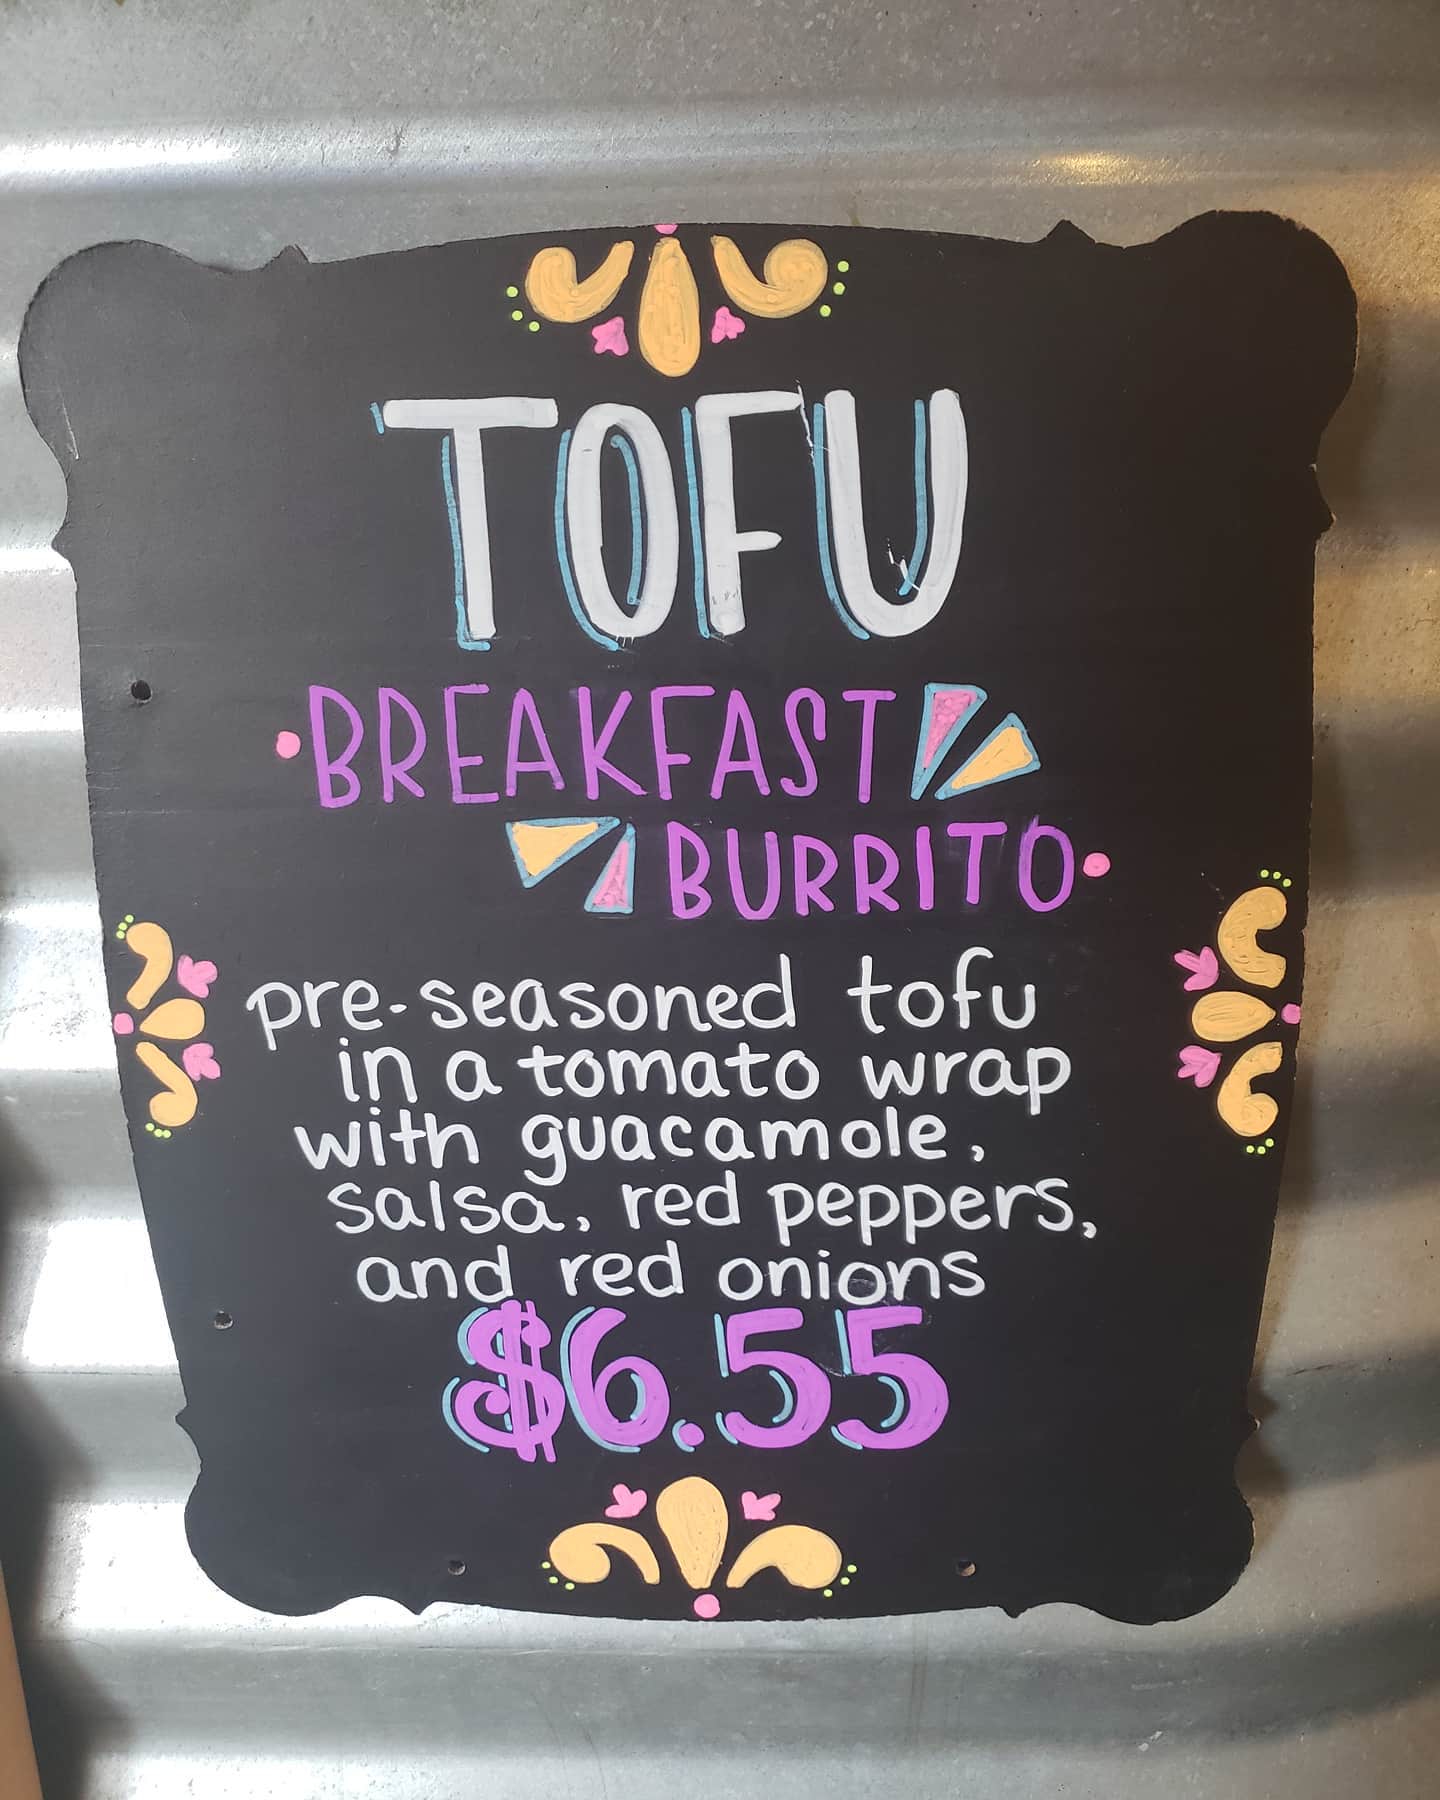 TOFU
BREAKFAST
BURRITO
pre-seasoned tofu
in a tomato wrap
with guacamole,
salsa, red peppers,
and red onions
$6.55